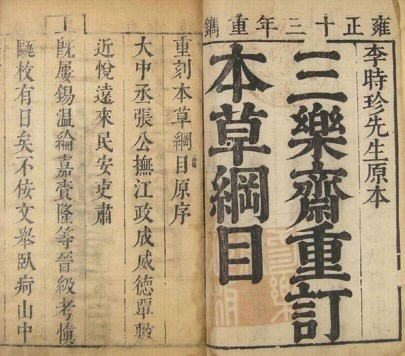 雍正十三年重鐫
李時珍先生原本
三樂齋重訂
本草綱目
重刻本草綱目原序
大中丞張公撫江政成威德覃敷
近悅遠來民安吏肅
既屢錫温綸嘉賚隆等晉級考慎
校有日矣不佞文舉臥痾山中